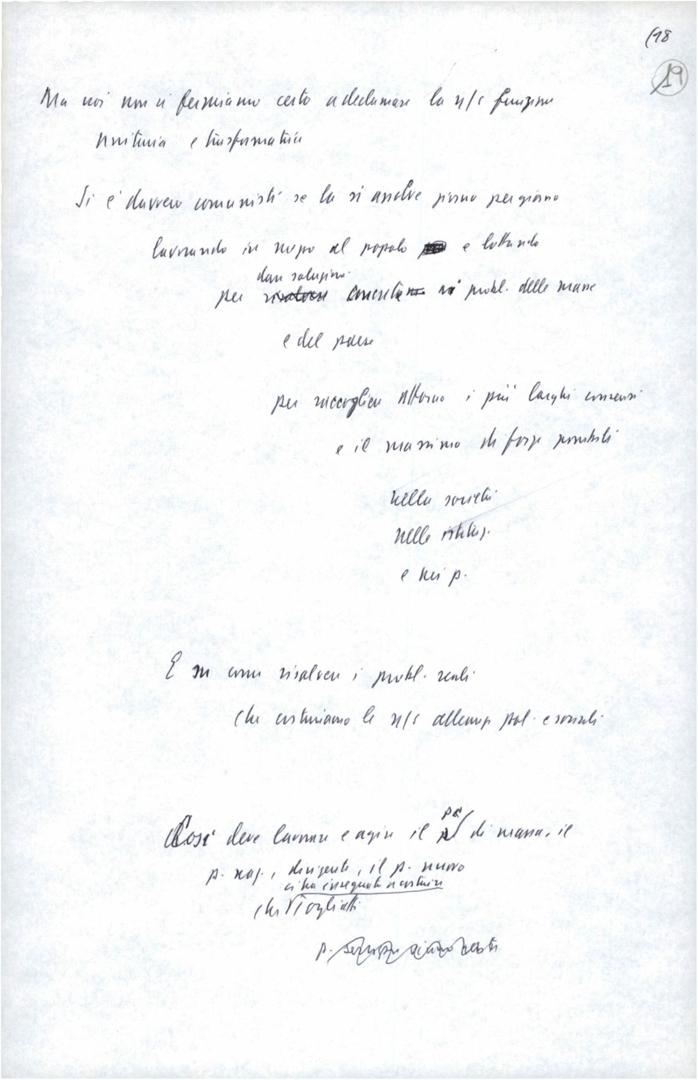 (18
19
Ma noi non ci fermiamo certo a declamare la n/s funzione
unitaria e trasformatrice
Si è davvero comunisti se la si assolve giorno per giorno
lavorando in mezzo al popolo e lottando
dare soluzioni
per risolvere concrete ai probl. delle masse
e del paese
per raccogliere attorno i più larghi consensi
e il massimo di forze possibili
nella società
nelle istituz.
e nei p.
E su come risolvere i probl. reali
che costruiamo le n/s alleanze pol. e sociali
Così deve lavorare e agire il p di massa, il
p. naz., dirigente, il p. nuovo
ci ha insegnato a costruire
che Togliatti
p.